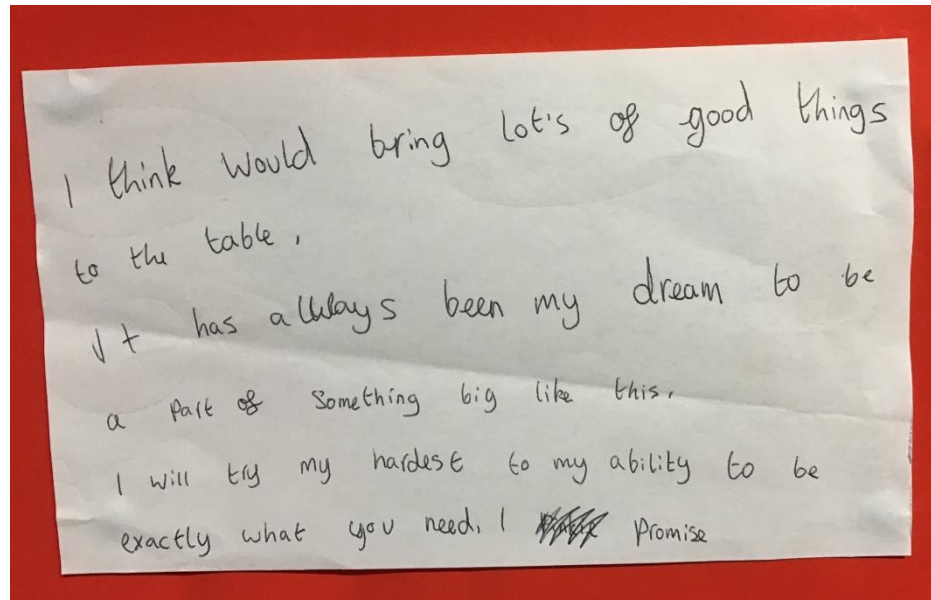 I think would bring lot's of good things
to the table,
It has always been my dream to be
a part of something big like this.
I will try my hardest to my ability to be
exactly what you need. I promise